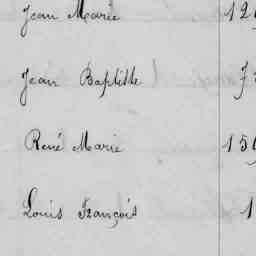 Jean Marie 12
Jean Baptiste
René Marie 15
Louis François 1